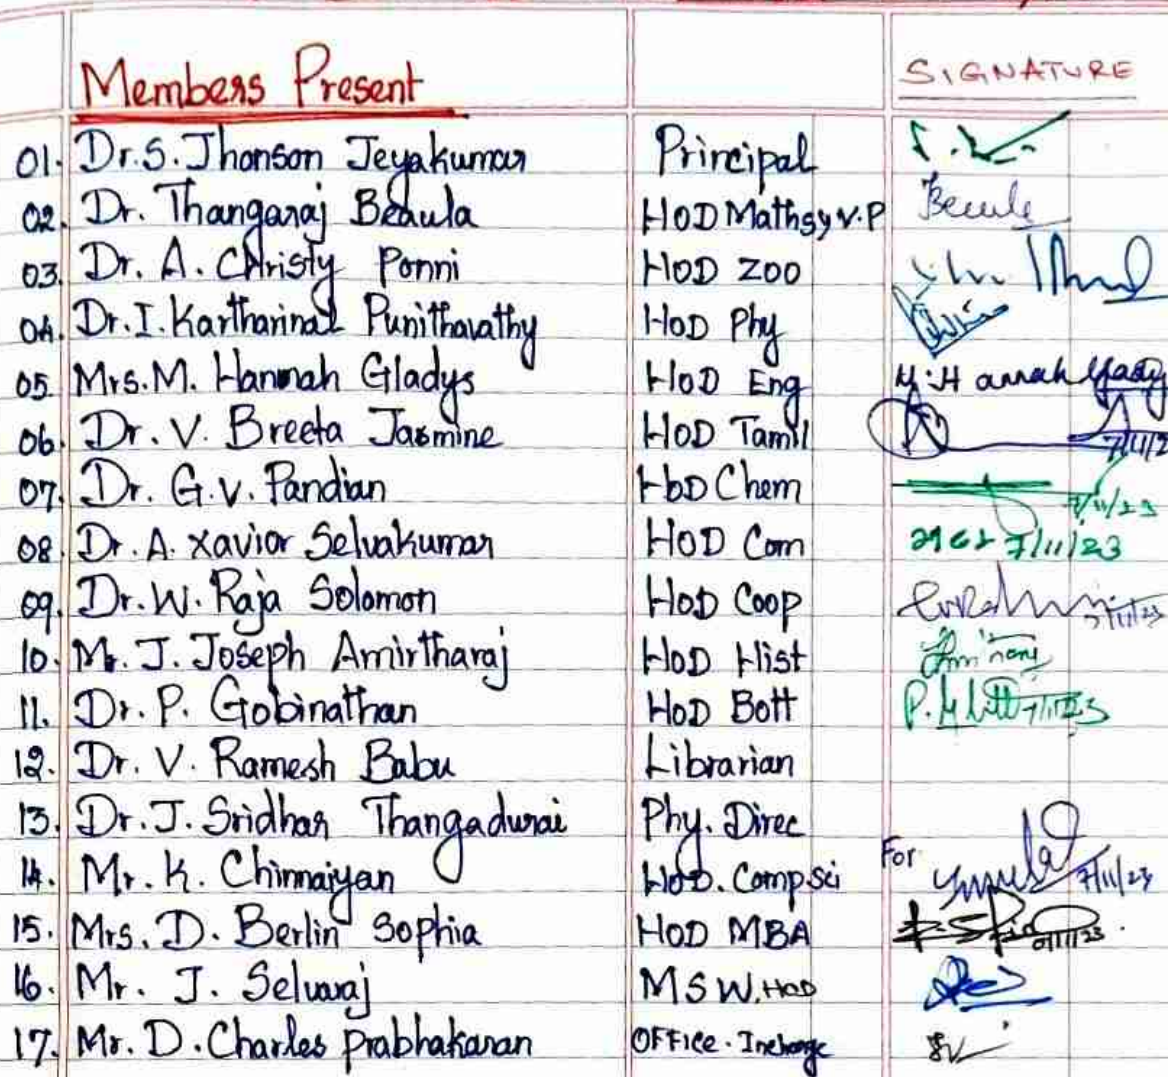 Members Present SIGNATURE
01. Dr.S. Jhonson Jeyakumar Principal
02. Dr. Thangaraj Beaula HOD Maths y V.P Beaula
03. Dr. A. Christy Ponni HOD ZOO
04. Dr.I. Kartharinal Punithavathy HOD Phy
05. Mrs.M. Hannah Gladys HOD Eng M.Hannah Glady
06. Dr. V. Breeta Jasmine HOD Tamil 7/11/2
07. Dr. G.V. Pandian HOD Chem 7/11/23
08. Dr. A. Xavior Selvakumar HOD Com 7/11/23
09. Dr. W. Raja Solomon HOD Coop 7/11/23
10. Mr. J. Joseph Amirtharaj HOD Hist
11. Dr. P. Gobinathan HOD Bott 7/11/23
12. Dr. V. Ramesh Babu Librarian
13. Dr. J. Sridhar Thangadurai Phy. Direc
14. Mr. K. Chinnaiyan HOD. Comp.Sci For 7/11/23
15. Mrs. D. Berlin Sophia HOD MBA 7/11/23
16. Mr. J. Selvaraj MSW. HOD
17. Mr. D. Charles Prabhakaran OFFice. Incharge